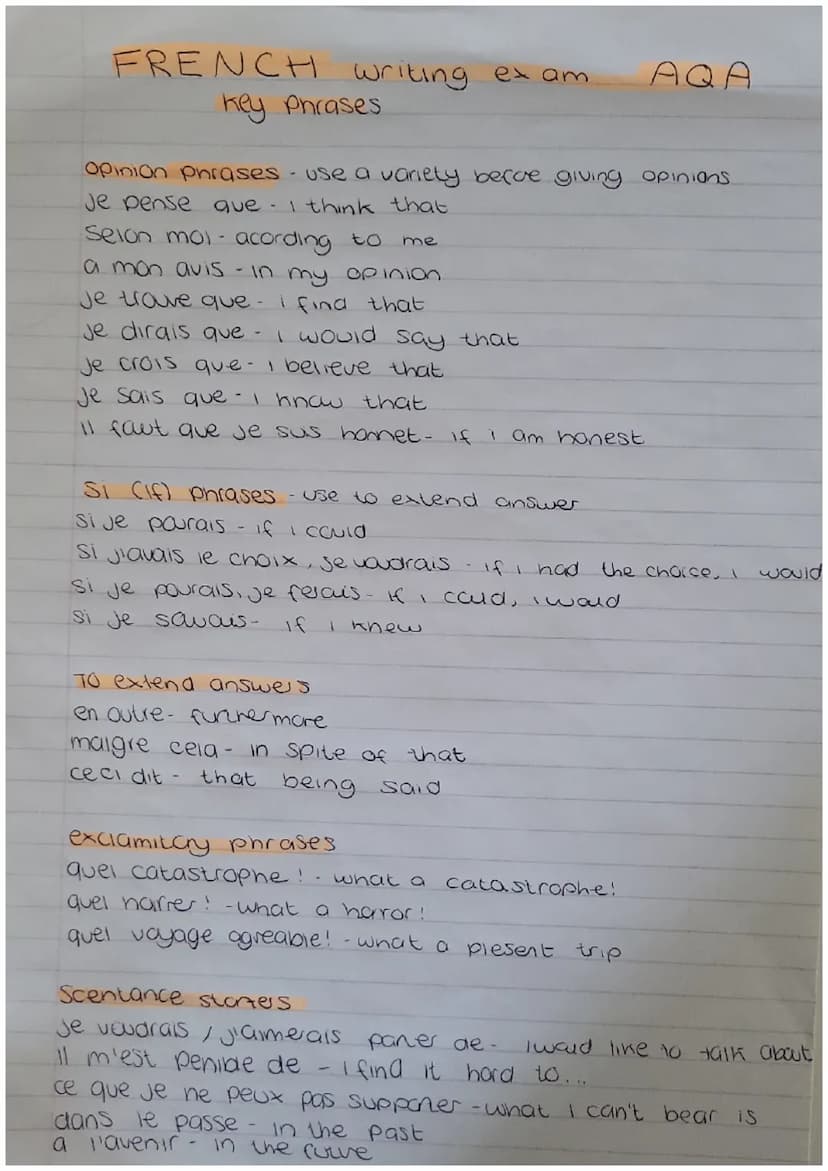 FRENCH writing exam AQA
key phrases
opinion phrases - use a variety becore giving opinions
je pense que - i think that
selon moi - acording to me
a mon avis - in my opinion
je trouve que - i find that
je dirais que - i would say that
je crois que - i believe that
je sais que - i know that
il faut que je sus honnet - if i am honest
si (if) phrases - use to extend answer
si je pourais - if i could
si j'avais le choix, je voudrais - if i had the choice, i would
si je pourais, je ferais - if i could, i would
si je savais - if i knew
To extend answers
en outre - furthermore
malgre cela - in spite of that
ceci dit - that being said
exclamitory phrases
quel catastrophe! - what a catastrophe!
quel horrer! - what a horror!
quel voyage agreable! - what a plesent trip
Scentance starters
je voudrais / j'aimerais parler de - i would like to talk about
il m'est penible de - i find it hard to...
ce que je ne peux pas supporter - what i can't bear is
dans le passe - in the past
a l'avenir - in the future